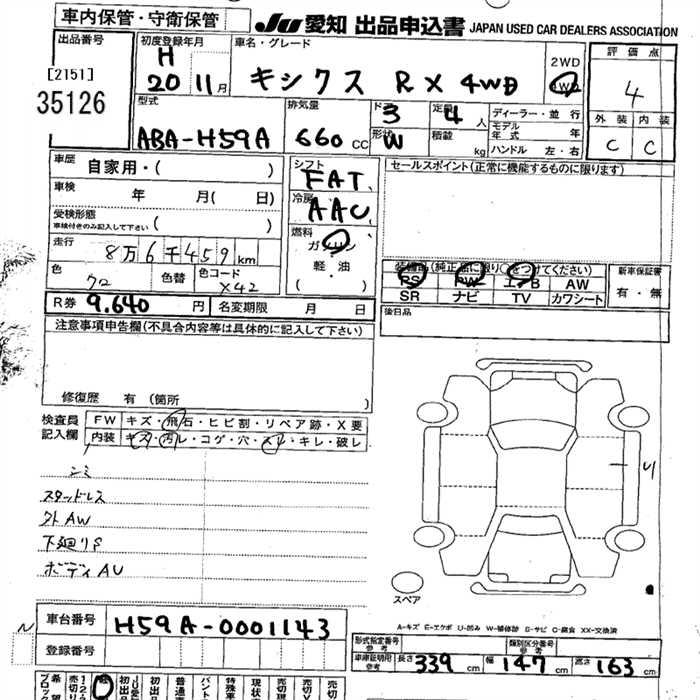 車内保管・守衛保管
JU 愛知 出品申込書 JAPAN USED CAR DEALERS ASSOCIATION
出品番号
[2151]
35126
初度登録年月
H
20 11月
車名・グレード
キシクス RX 4WD
2WD
4WD
評価点
4
外装 内装
C C
型式
ABA-H59A
排気量
660 CC
ドア
3
形状
W
定員
4 人
積載
kg
ディーラー・並行
モデル年式 年
ハンドル 左・右
車歴
自家用・( )
車検
年 月( 日)
受検形態
車検付きのみ記入して下さい ( )
走行
8万6千459km
色
クロ
色替
色コード
X42
シフト
FAT
冷房
AAC
燃料
ガソリン
軽・油
( )
セールスポイント(正常に機能するものに限ります)
装備品(純正品に限り○をつけてください)
PS PW エアB AW
SR ナビ TV カワシート
新車保証書
有・無
R券 9.640 円
名変期限 月 日
後日品
注意事項申告欄(不具合内容等は具体的に記入して下さい)
修復歴 有 (箇所 )
検査員
記入欄
FW キズ・飛石・ヒビ割・リペア跡・X要
内装 キズ・汚レ・コゲ・穴・スレ・キレ・破レ
シミ
スタッドレス
外AW
下廻りS
ボディAU
スペア
A-キズ E-エクボ U-凹み W-補修跡 S-サビ C-腐食 XX-交換済
車台番号
H59A-0001143
登録番号
形式指定番号
参考
類別区分番号
参考
車庫証明用
参考
長さ 339 cm 幅 147 cm 高さ 163 cm